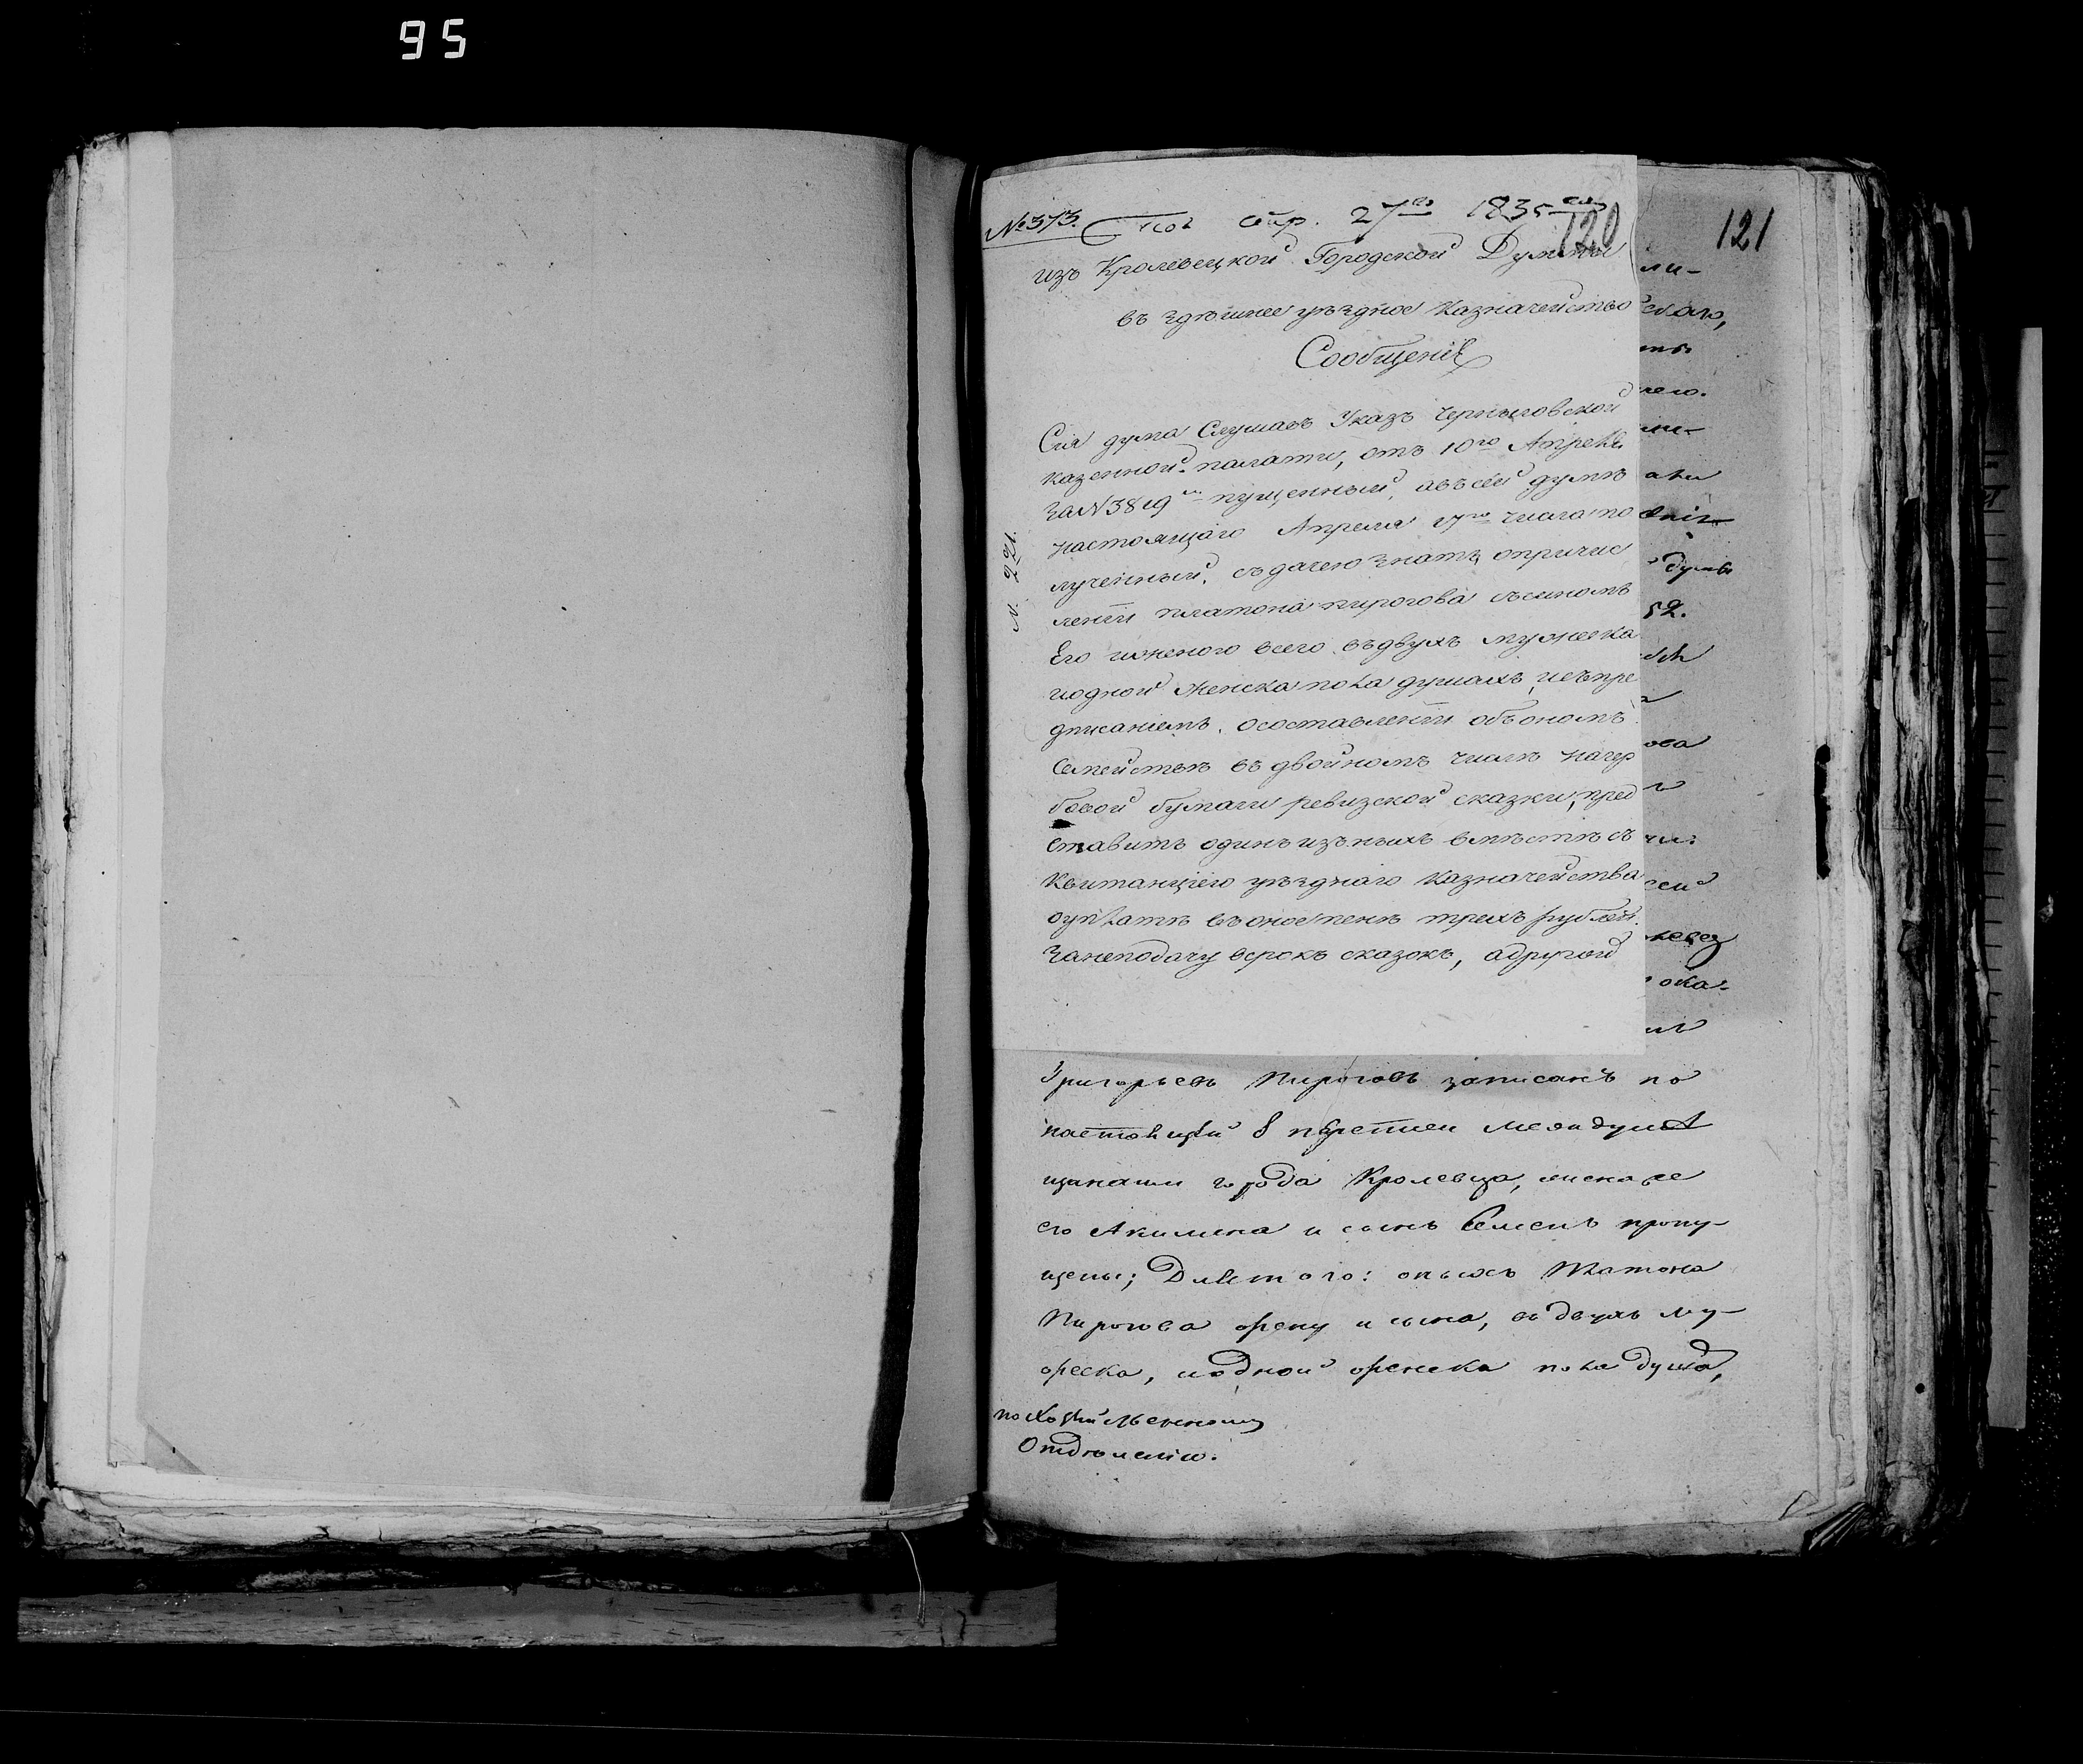 95
№373. Пол. апр. 27го 1835го
120
121
изъ Кролевецкой Городской Думы
въ здѣшнее уѣздное казначейство
Сообщеніе
Сія дума Слушавъ Указъ Черниговской
казенной палаты, отъ 10го Апреля
за N3819м пущенный, авъ сей думѣ
настоящаго Апреля 17го числа по
лученный, съ дачею знать опричис
леніи платона пирогова съ сыномъ
Его и женою всего въ двухъ мужеска
и одной женска пола душахъ, и съ пре
дписаніемъ, о составленіи обь ономъ
Семействѣ въ двойномъ числѣ на гер
бовой бумаги ревизской сказки, пред
ставить одинъ изъ ныхъ вмѣстѣ съ
квитанціею уѣзднаго Казначейства
о уплатѣ въ оное пенѣ трехъ рублей
за неподачу въ срокъ сказокъ, а другой
N. 221.
ли-
скаго,
думы
52.
ока-
Григорьевъ Пироговъ записанъ по
настоящей 8 переписи между мѣ
щанами города Кролевца, жена же
его Акилина и сынъ Семенъ пропу-
щены; Для того: оныхъ Платона
Пирогова жену и сына, въ двухъ му-
жеска, и одной женска пола душа,
по Хозяйственному
Отдѣленію.